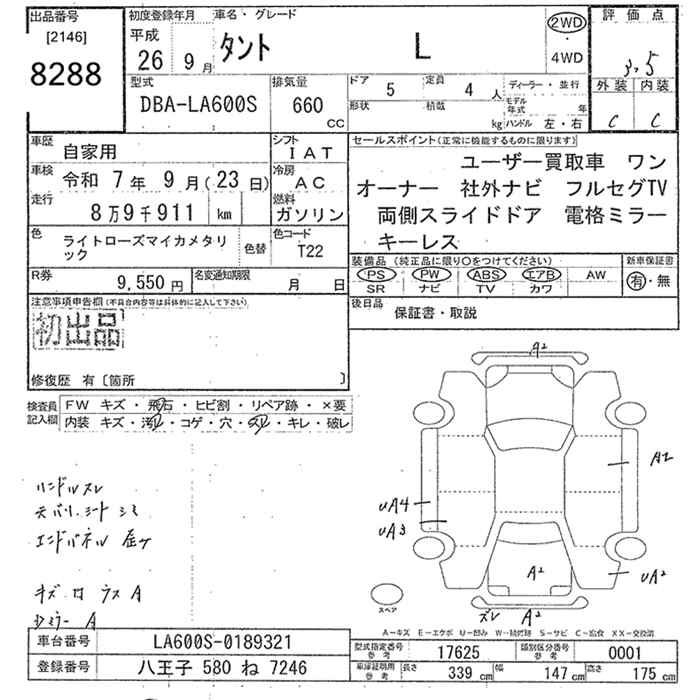 出品番号
[2146]
8288
初度登録年月
平成
26 9月
車名・グレード
タント L
2WD
・
4WD
評価点
3.5
外装 内装
C C
型式
DBA-LA600S
排気量
660
CC
ドア 5 定員 4 人
形状 積載 kg
ディーラー・並行
モデル年式 年
ハンドル 左・右
車歴 自家用
シフト IAT
車検 令和 7年 9月(23日)
冷房 AC
走行 8万9千911 km
燃料 ガソリン
色 ライトローズマイカメタリック
色替
色コード T22
R券 9,550円
名変通知期限 月 日
セールスポイント(正常に機能するものに限ります)
ユーザー買取車 ワン
オーナー 社外ナビ フルセグTV
両側スライドドア 電格ミラー
キーレス
装備品 (純正品に限り〇をつけてください)
PS PW ABS エアB AW
SR ナビ TV カワ
新車保証書
有・無
後日品 保証書・取説
注意事項申告欄(不具合内容等は具体的に記入して下さい)
初出品
修復歴 有〔箇所 〕
検査員記入欄
FW キズ・飛石・ヒビ割・リペア跡・×要
内装 キズ・汚れ・コゲ・穴・スレ・キレ・破レ
ハンドルスレ
天バリ.シート シミ
エンドパネル 歪み
A2
A2
UA4
UA3
A2
UA2
スレ A2
スペア
A-キズ E-エクボ U-凹み W-補修跡 S-サビ C-腐食 XX-交換済
車台番号 LA600S-0189321
登録番号 八王子 580 ね 7246
型式指定番号 参考 17625
類別区分番号 参考 0001
車庫証明用 参考 長さ 339 cm 幅 147 cm 高さ 175 cm